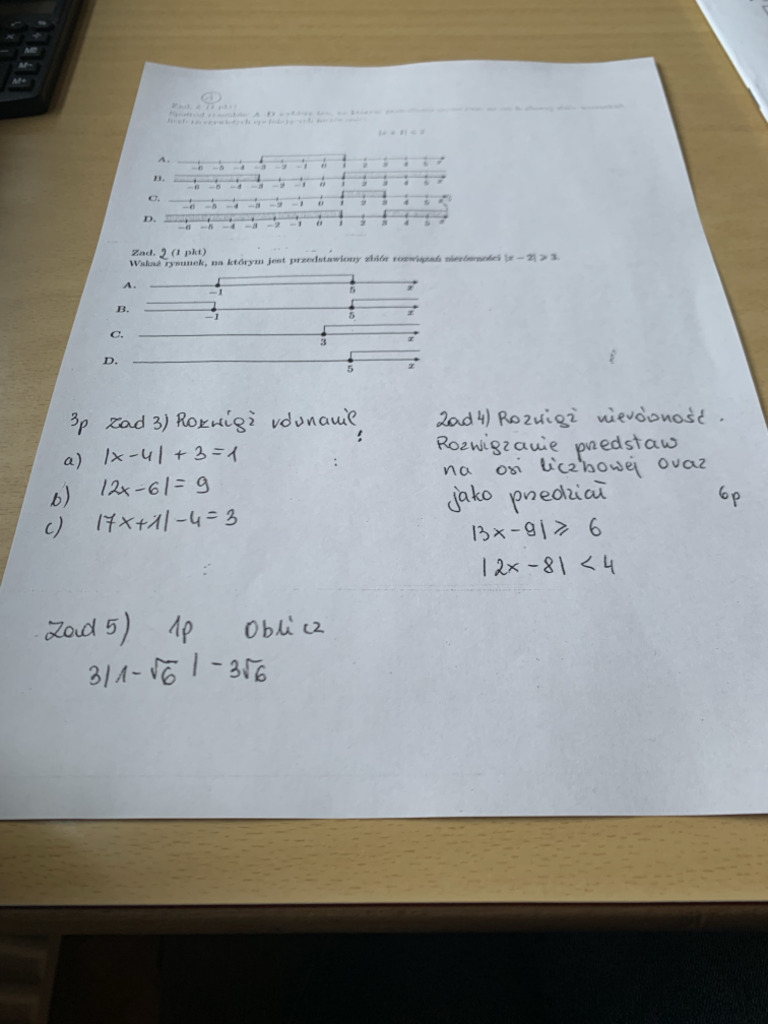 Zad. 1 (1 pkt)
A.
-6 -5 -4 -3 -2 -1 0 1 2 3 4 5 x
B.
-6 -5 -4 -3 -2 -1 0 1 2 3 4 5 x
C.
-6 -5 -4 -3 -2 -1 0 1 2 3 4 5 x
D.
-6 -5 -4 -3 -2 -1 0 1 2 3 4 5 x
Zad. 2 (1 pkt)
Wskaż rysunek, na którym jest przedstawiony zbiór rozwiązań nierówności |x − 2| ⩾ 3.
A.
-1 5 x
B.
-1 5 x
C.
3 x
D.
5 x
3p zad 3) Rozwiąż równanie!
a) |x-4| + 3 = 1
b) |2x-6| = 9
c) |7x+1| - 4 = 3
Zad 4) Rozwiąż nierówność.
Rozwiązanie przedstaw
na osi liczbowej oraz
jako przedział 6p
|3x-9| ⩾ 6
|2x-8| < 4
Zad 5) 1p Oblicz
3|1-√6| - 3√6